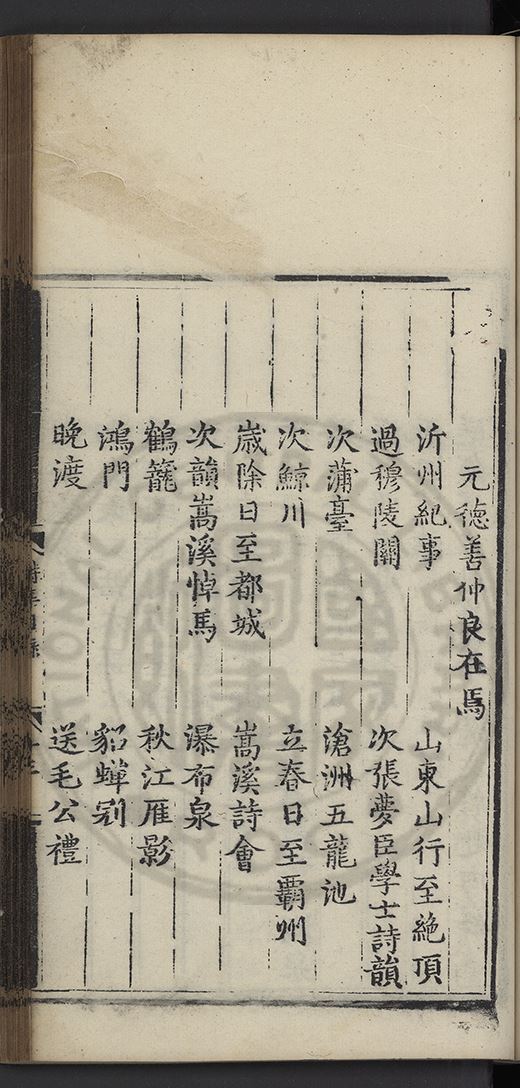 元德善仲良在焉
沂州紀事
山東山行至絶頂
過穆陵關
次張夢臣學士詩韻
次蒲臺
滄洲五龍池
次鯨川
立春日至霸州
歲除日至都城
嵩溪詩會
次韻嵩溪悼馬
瀑布泉
鶴籠
秋江雁影
鴻門
貂蟬冠
晚渡
送毛公禮